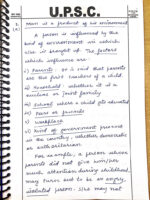 U.P.S.C.
Man is a product of his environment
A person is influenced by the
kind of environment an individual
is brought up. The factors
which influence are:
Parents or it is said that parents
are the first teachers of a child.
Household whether it is a
nuclear or joint family
School where a child gets educated
Peer or friends
Workplace
Kind of government prevalent
in the country, whether democratic
or authoritarian.
For example, a person whose
parents did not give him/her
much attention during childhood
may turn out to be an angry,
person. S/he may not